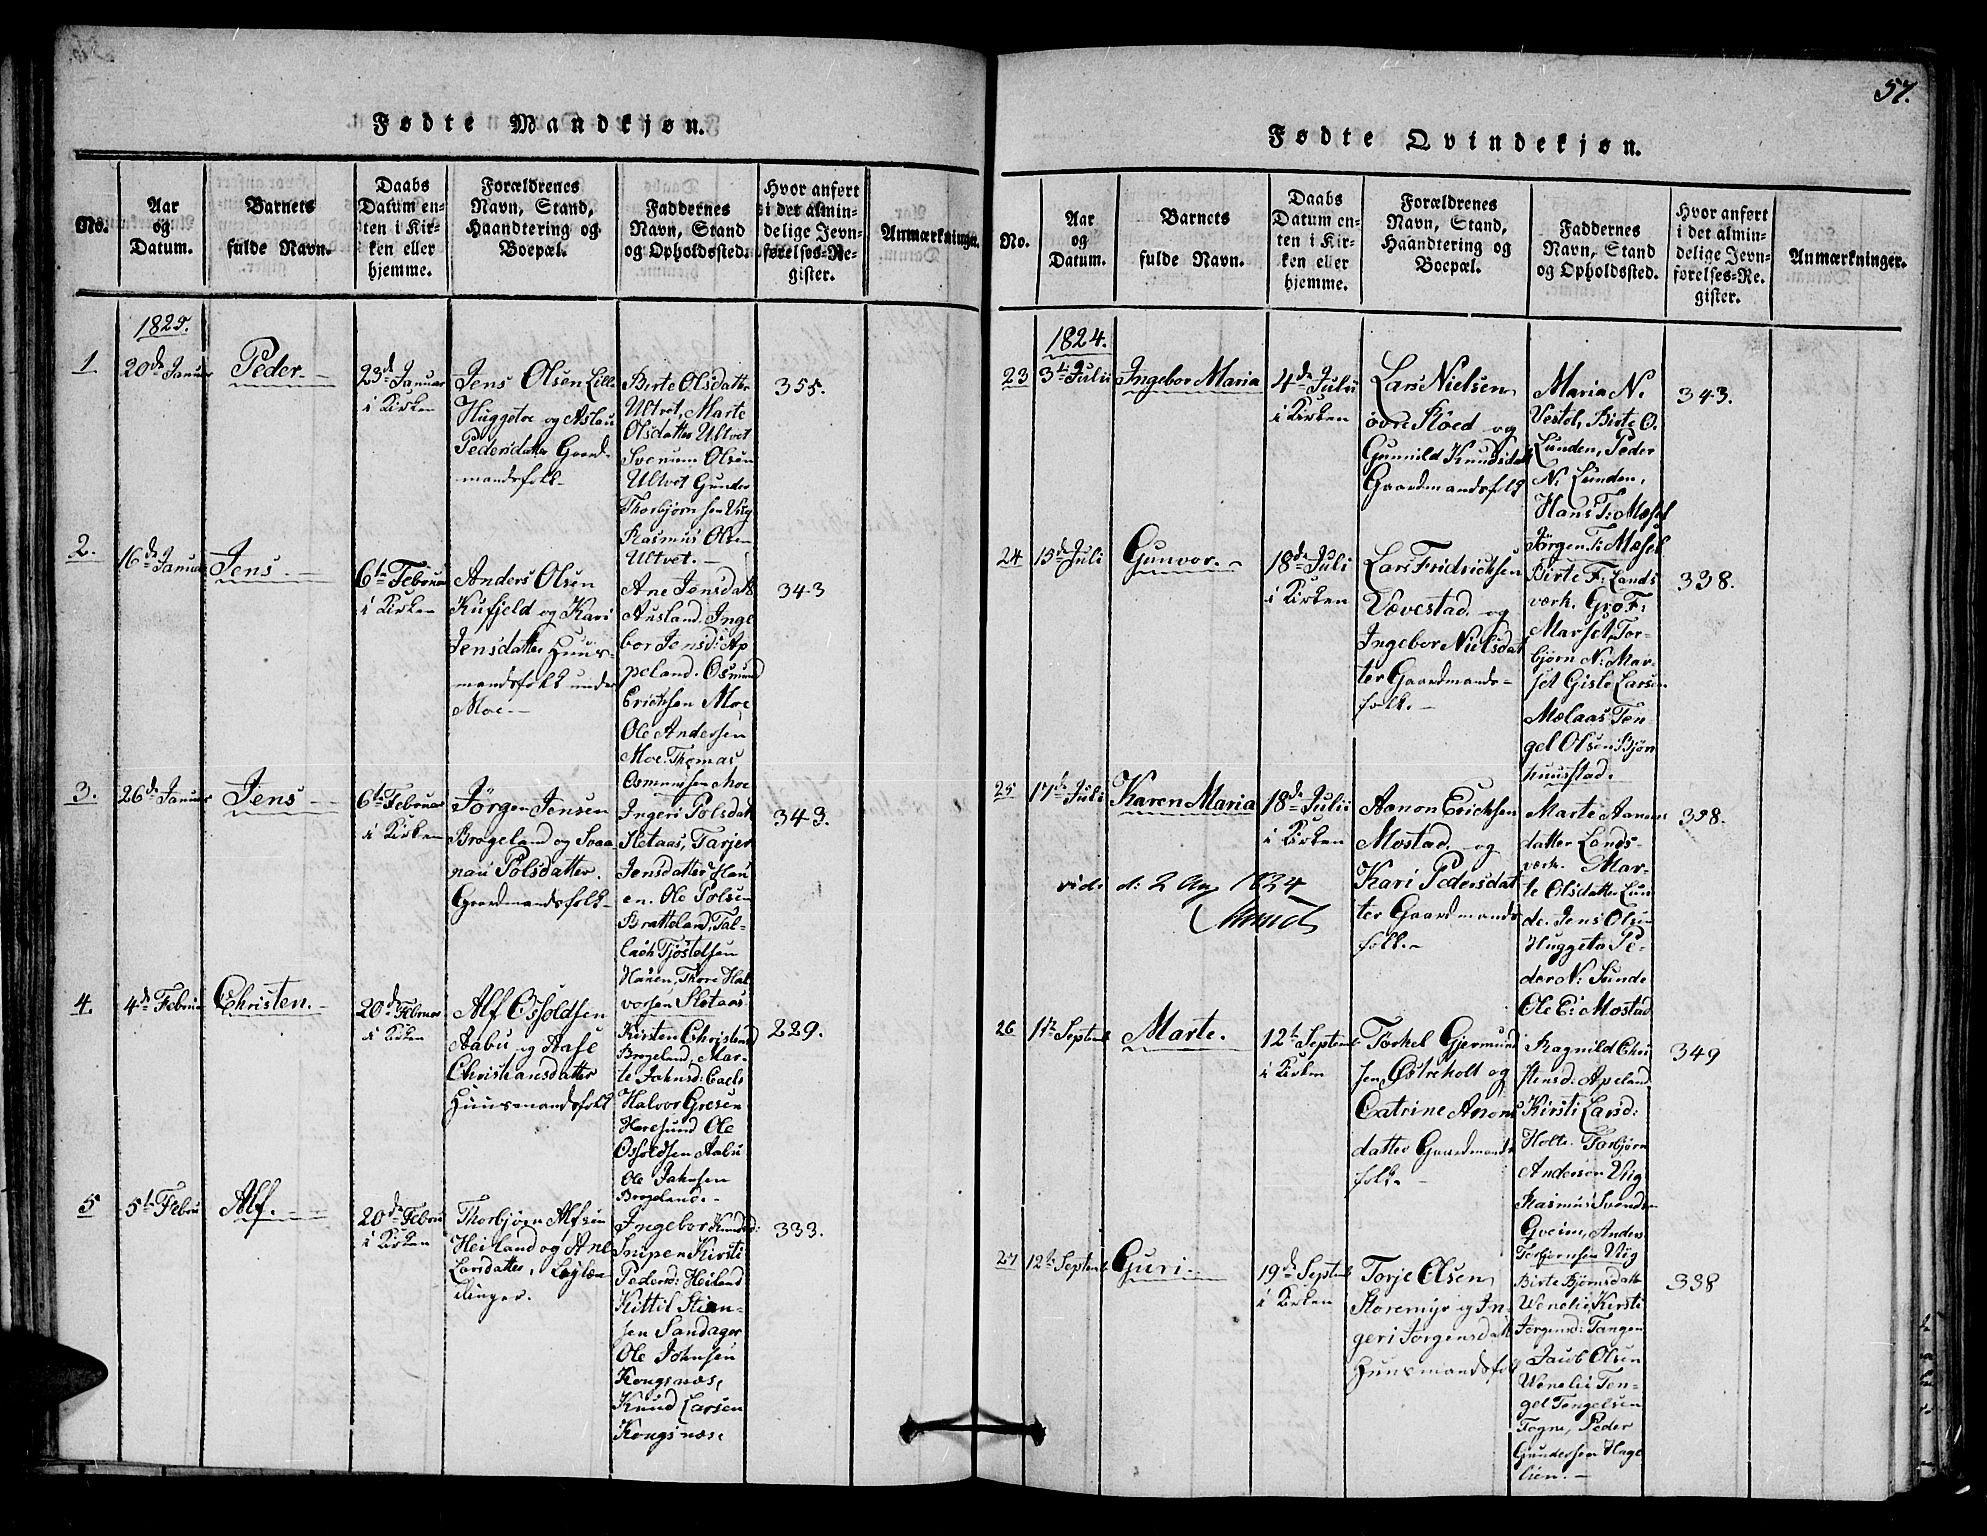 57.
Fødte Mandkjøn.
No.
Aar
og
Datum.
Barnets
fulde Navn.
Daabs
Datum en-
ten i Kir-
ken eller
hjemme.
Forældrenes
Navn, Stand,
Haandtering og
Boepæl.
Faddernes
Navn, Stand
og Opholdssted.
Hvor anført
i det almin-
delige Jevn-
førelses-Re-
gister.
Anmærkninger.
1825.
1
20de Januar
Peder.
23d Januar
i Kirken
Jens Olsen Lille
Huggetoe og Aslau
Pedersdatter Gaard-
mandsfolk
Birte Olsdatter
Ultvet, Marte
Olsdatter Ultvet
Svenum Olsen
Ultvet Gunder
Thorbjørnsen Viig
Rasmus Olsen
Ultvet.
355.
2.
16de Januar
Jens.
6te Februar
i Kirken
Anders Olsen
Kufjeld og Kari
Jensdatter Huus-
mandsfolk under
Moe.
Ane Jensdatt
Ausland. Inge
bor Jensd: Ap
peland. Osmund
Ericksen Moe
Ole Andersen
Moe. Thomas
Osmundsen Moe
343
3.
26de Januar
Jens
6te Februar
i Kirken
Jørgen Jensen
Brogeland og Svaa
nau Polsdatter.
Gaardmandsfolk
Ingeri Polsdatt
Sletaas, Tarjer
Jensdatter Hau
en. Ole Polsen
Bratteland, Tal-
lach Tjøstelsen
Hauen, Thore Hal
vorsen Sletaas
343.
4.
4de Februar
Christen.
20de Februar
i Kirken
Alf Osfoldsen
Aabu og Aase
Christiansdatter
Huusmandsfolk
Kirsten Christensd
Brogeland, Mar-
te Jahnsd:
Halvor Gresen
Heresund Ole
Osfoldsen Aabu
Ole Jahnsen
Brogeland.
229.
5
5te Febru
Alf.
20de Febru
i Kirken
Thorbjørn Alfsen
Heiland og Ane
Larsdatter, Leylæn
dinger.
Ingebor Knudsd:
Snipen Kirsti
Pedersd: Heiland
Kittil Stian-
sen Sandager
Ole Johnsen
Kongsnæs,
Knud Larsen
Kongsnæs.
333.
Fødte Qvindekjøn.
No.
Aar
og
Datum.
Barnets
fulde Navn.
Daabs
Datum en-
ten i Kir-
ken eller
hjemme.
Forældrenes
Navn, Stand,
Haandtering og
Boepæl.
Faddernes
Navn, Stand
og Opholdssted.
Hvor anført
i det almin-
delige Jevn-
førelses-Re-
gister.
Anmærkninger.
1824.
23
3de Julii
Ingebor Maria
4de Julii
i Kirken
Lars Nielsen
øvre Røed og
Gunnild Knudsdatt
Gaardmandsfolk
Maria N.
Vestøl, Birte O.
Lunden, Peder
N. Lunden,
Hans T: Mæsel
Jørgen T: Mæsel
343.
24
15de Juli
Gunvor.
18de Juli
i Kirken
Lars Fridricksen
Vævestad og
Ingebor Nielsdat
ter Gaardmands-
folk.
Birte F: Lands
værk. Gro F:
Marset, Tor-
bjørn N: Mar-
set Gisle Larsen
Mølaas Ten-
gel Olsen Bjørn
huusstad.
338.
25
17de Juli
Karen Maria
18de Julii
i Kirken
Aanon Ericksen
Mostad og
Kari Pedersdat
ter Gaardmands
folk.
Marte Aanons
datter Lands-
værk. Mar-
te Olsdatter Lun
de. Jens Olsen
Huggeto Pe-
der N: Lunde
Ole E: Mostad
398.
vid. d: 2 Aug 1824
26
1te Septemb
Marte.
12te Septemb
i Kirken
Torkel Gjermund
sen Østreholt og
Catrine Anons
datter Gaardmands
folk.
Ragnild Chri
stensd: Apeland
Kirsti Larsd:
Holte. Torbjørn
Anderson Viig
Rasmus Svendsen
Gveim, Anders
Torbjørnsen Viig
349
27
12te Septemb
Guri.
19de Septemb
i Kirken
Torje Olsen
Storemyr og In-
geri Jørgensdatt
Huusmandsfolk
Birte Bjørnsdatt
Wenelie Kirsti
Jørgensd: Tangen
Jacob Olsen
Wenelie Ten-
gel Tengelsen
Togne, Peder
Gundersen Hage
lien.
338